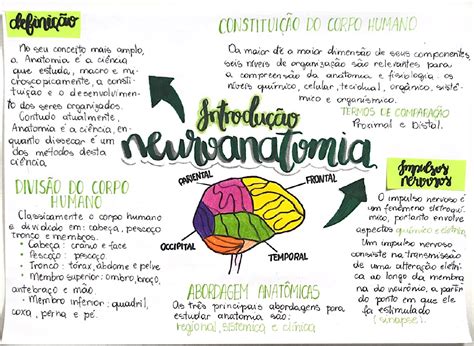 definição
No seu conceito mais amplo,
a Anatomia é a ciência
que estuda, macro e
microscopicamente, a consti-
tuição e o desenvolvimento
dos seres organizados.
Contudo atualmente,
Anatomia é a ciência, en-
quanto dissecar é um
dos métodos desta
ciência.
CONSTITUIÇÃO DO CORPO HUMANO
Da maior até a maior dimensão de seus componentes,
seis níveis de organização são relevantes para
a compreensão da anatomia e fisiologia: os
níveis químico, celular, tecidual, orgânico, sistê-
mico e organísmico.
TERMOS DE COMPARAÇÃO
Proximal e Distal.
Introdução
neuroanatomia
PARIENTAL
FRONTAL
OCCIPITAL
TEMPORAL
DIVISÃO DO CORPO
HUMANO
Classicamente o corpo humano
é dividido em: cabeça, pescoço
tronco e membros.
• Cabeça: crânio e face
• Pescoço: pescoço.
• Tronco: tórax, abdome e pelve
• Membro superior: ombro, braço,
antebraço e mão
• Membro inferior: quadril,
coxa, perna e pé.
ABORDAGEM ANATÔMICAS
As três principais abordagens para
estudar anatomia são:
regional, sistêmica e clínica.
Impulsos
nervosos
O impulso nervoso é
um fenômeno eletroquí-
mico, portanto envolve
aspectos químico e elétrico.
Um impulso nervoso
consiste na transmissão
de uma alteração elétri-
ca ao longo da membra
na do neurônio, a partir
do ponto em que ele
foi estimulado
(sinapse).